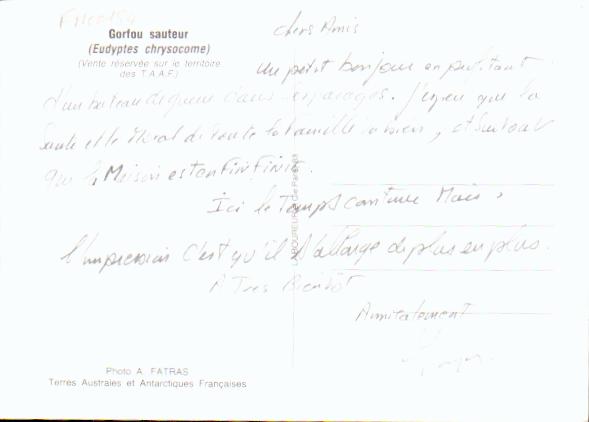 Gorfou sauteur
(Eudyptes chrysocome)
(Vente réservée sur le territoire
des T.A.A.F.)
chers Amis
Un petit bonjour en profitant
d'un bateau de guerre dans les parages. J'espere que la
Santé et le Moral de toute la famille va bien, et surtout
que la Maison est enfin finie.
Ici le Temps continue Mais,
l'impression c'est qu'il s'allonge de plus en plus.
A Tres Bientôt
Amicalement
Photo A. FATRAS
Terres Australes et Antarctiques Françaises